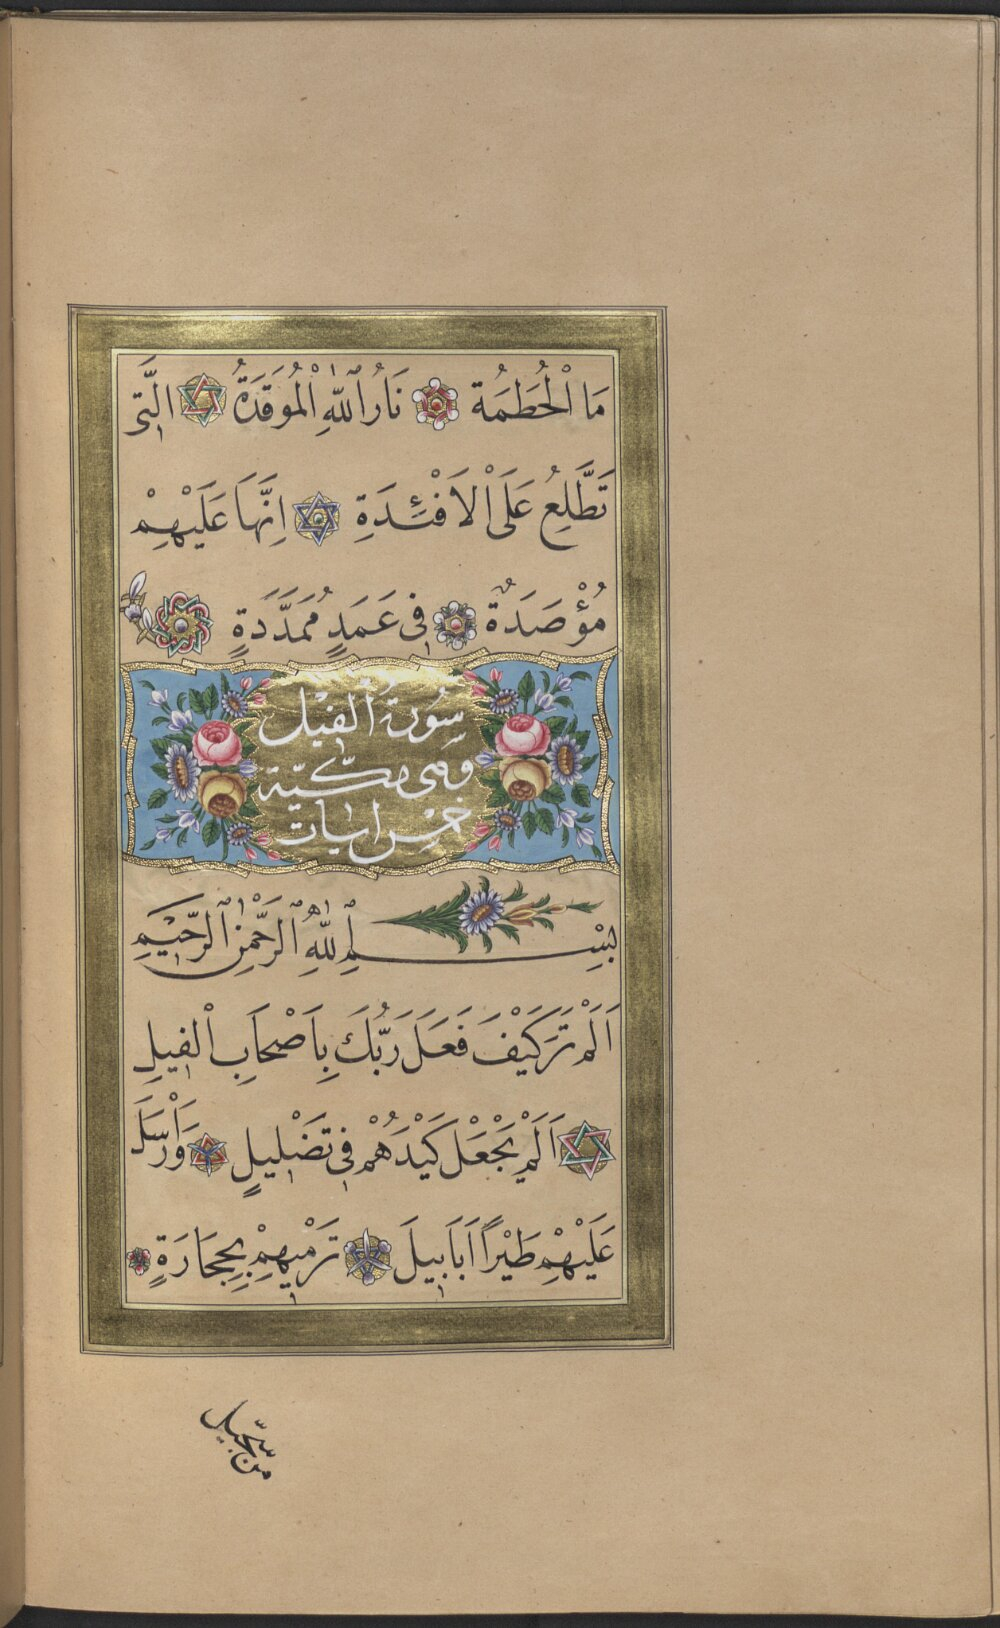 مَا الْحُطَمَةُ نَارُ اللّٰهِ الْمُوقَدَةُ الَّتِى
تَطَّلِعُ عَلَى الْاَفْـِٔدَةِ اِنَّهَا عَلَيْهِمْ
مُؤْصَدَةٌ فِى عَمَدٍ مُمَدَّدَةٍ
سُورَةُ الْفِيْل
وَهِىَ مَكِّيَّة
خَمْسُ اٰيات
بِسْمِ اللّٰهِ الرَّحْمٰنِ الرَّحِيمِ
اَلَمْ تَرَ كَيْفَ فَعَلَ رَبُّكَ بِاَصْحَابِ الْفِيلِ
اَلَمْ يَجْعَلْ كَيْدَهُمْ فِى تَضْلِيلٍ وَاَرْسَلَ
عَلَيْهِمْ طَيْرًا اَبَابِيلَ تَرْمِيهِمْ بِحِجَارَةٍ
من سجّيل